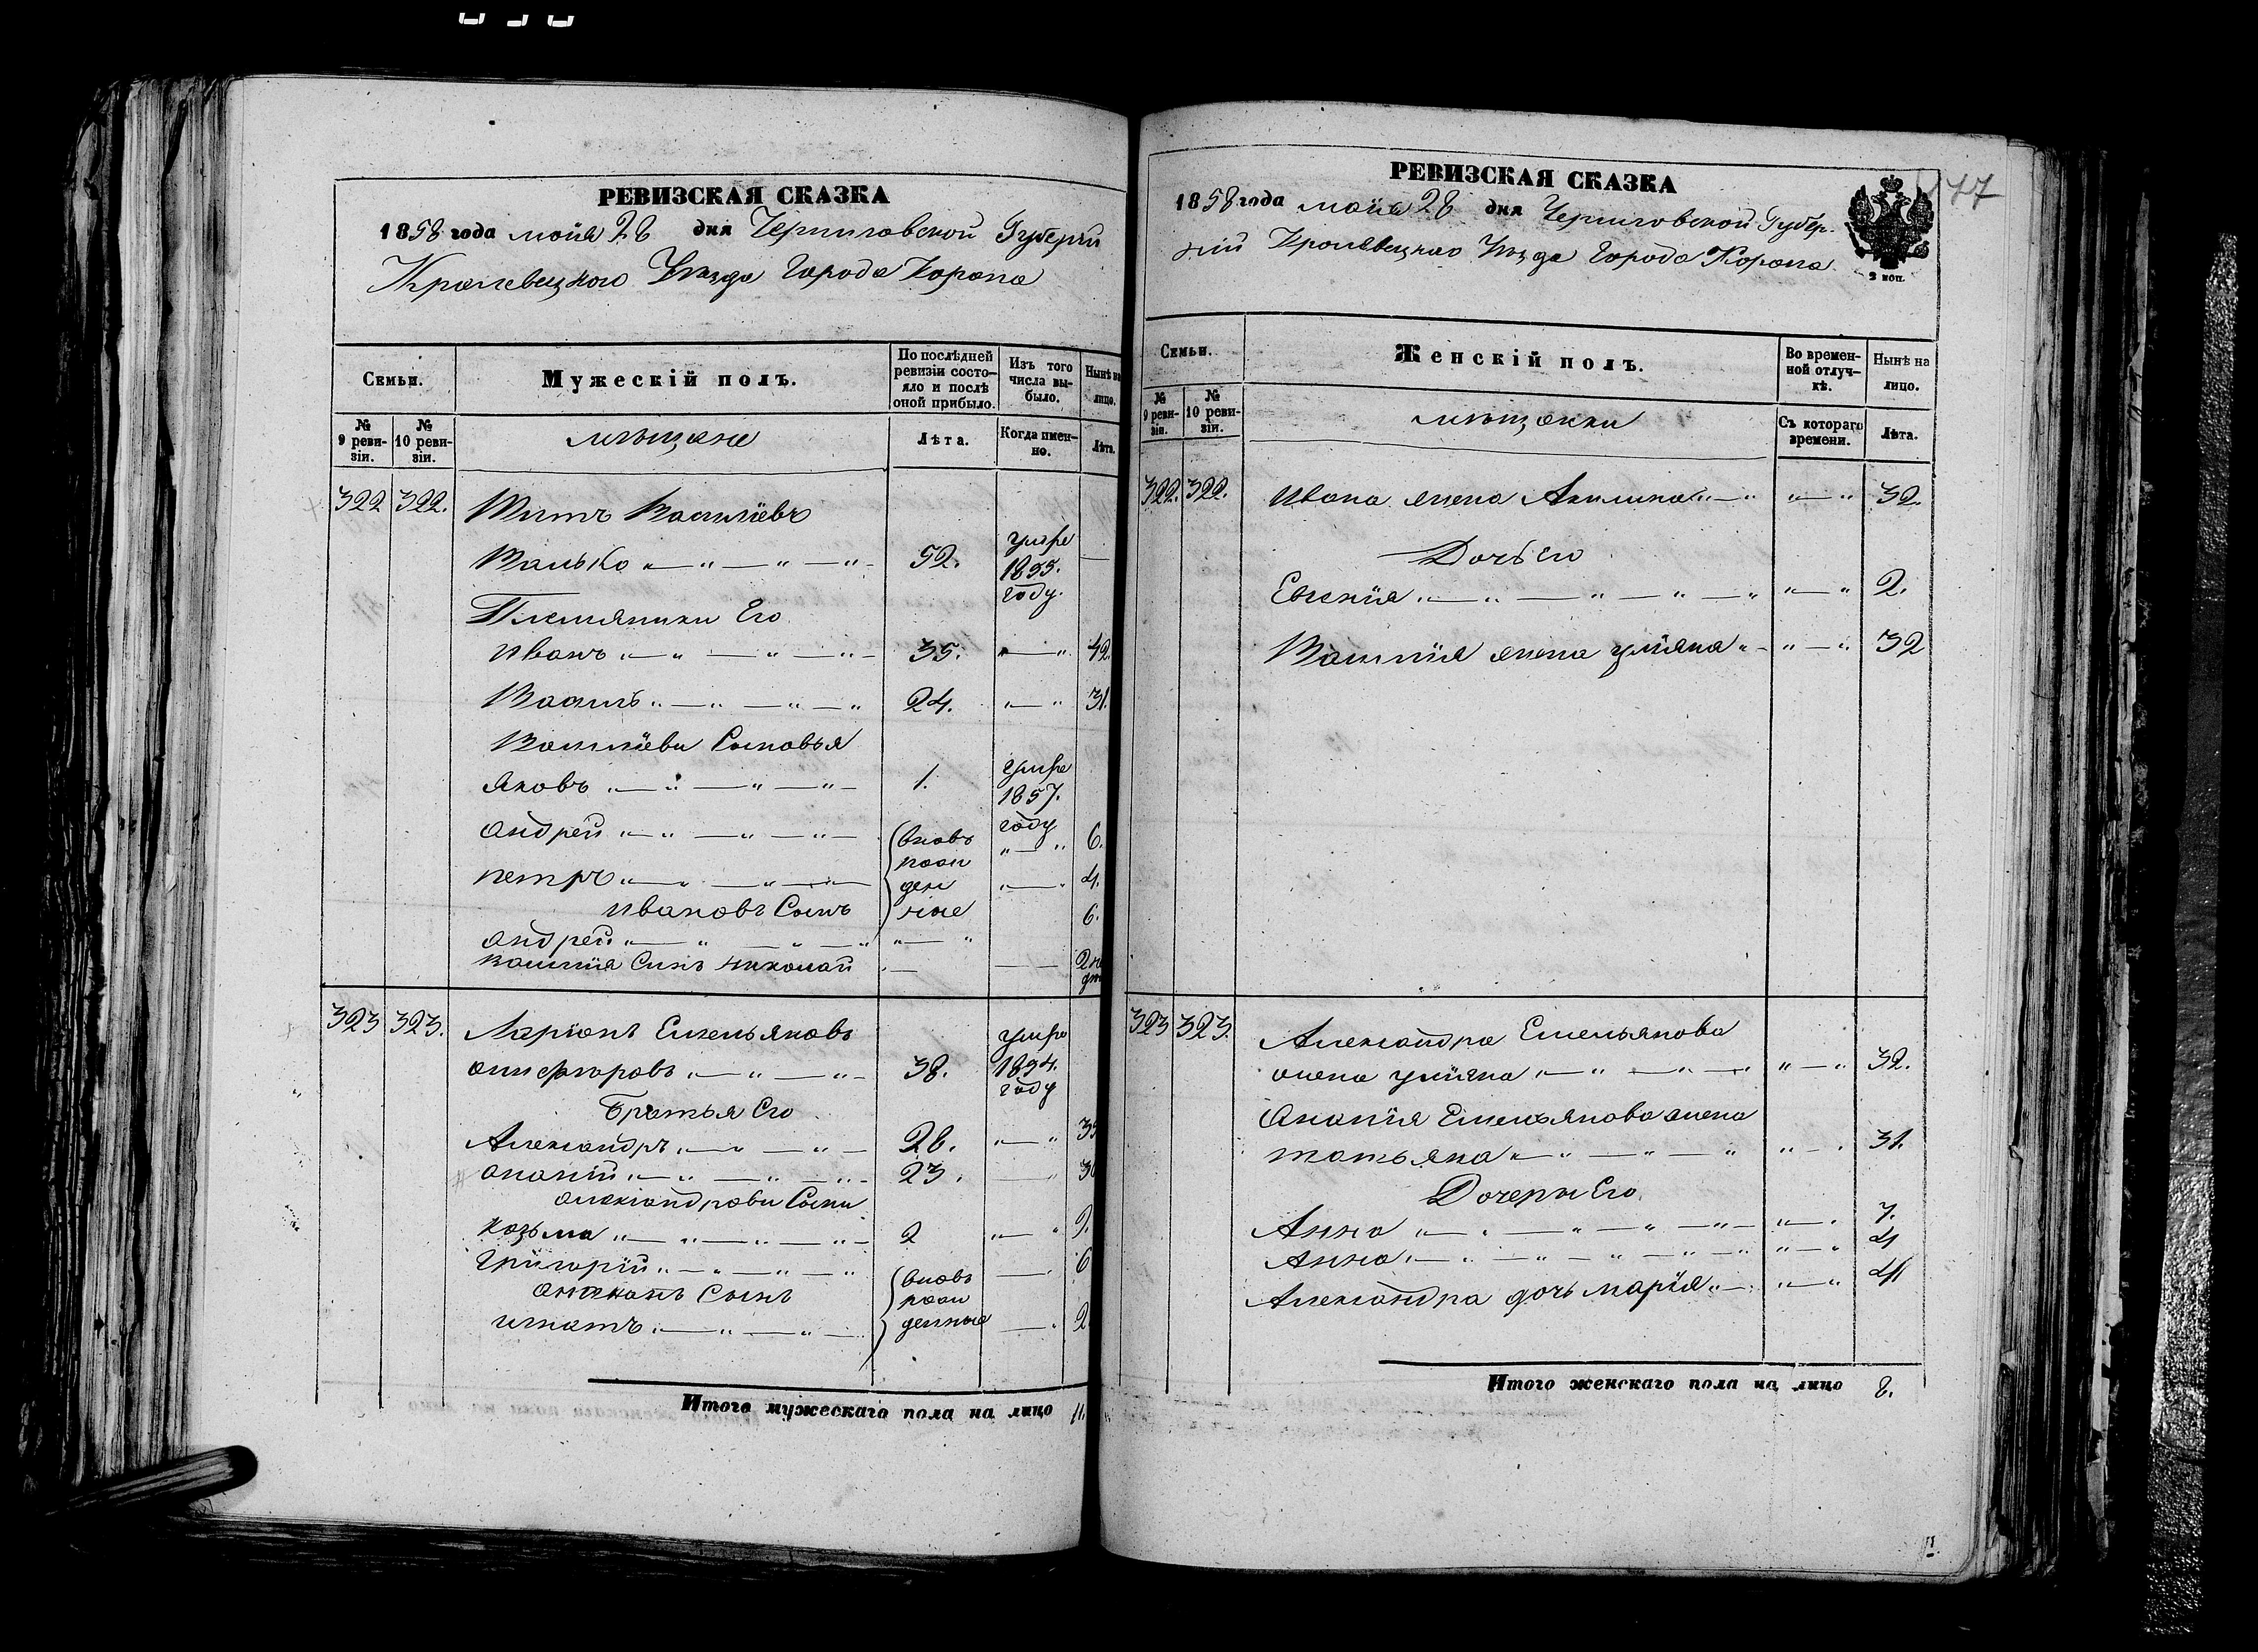 РЕВИЗСКАЯ СКАЗКА
1858 года мая 28 дня Черниговской Губерніи
Кролевецкого Уезда Города Коропа
Семьи.
Мужескій полъ.
По послѣдней ревизіи состояло и послѣ оной прибыло.
Изъ того числа выбыло.
Нынѣ на лицо.
№ 9 ревизіи.
№ 10 ревизіи.
мѣщане
Лѣта.
Когда именно.
Лѣта.
322 322. Титъ Василіевъ
Валько „ — „ — „ — „ 52. умре 1855. году. —
Племянники Его
Иванъ „ — „ — „ — „ 35. „ — „ 42.
Василь „ — „ — „ — „ 24. „ — „ 31.
Василіеви Сыновья
Яковъ „ — „ — „ — „ 1. умре 1857. году
андрей „ — „ — „ — „ вновь рожденные „ — „ 6.
петръ „ — „ — „ — „ „ — „ 4.
Ивановъ Сынъ 6.
андрей „ — „ — „ — „ „ — „
василія Сынъ николай — —
323 323. Ларіонъ Емельяновъ
анисфоровъ „ — „ — „ 38. умре 1854. году
Братья Его
Александръ „ — „ — „ 28. „ — „
ананій „ — „ — „ 23. — „
александрови Сыни
козьма „ — „ — „ — „ 2 „ — „ 9.
Григорій „ — „ — „ — „ вновь рожденные — „ 6
Сынъ
игнатъ „ — „ — „ — „ 2
Итого мужескаго пола на лицо 11.
РЕВИЗСКАЯ СКАЗКА
147
1858 года мая 28 дня Черниговской Губер-
ніи Кролевецкаго Уезда Города Коропа
2 коп.
Семьи.
Женскій полъ.
Во временной отлучкѣ.
Нынѣ на лицо.
№ 9 ревизіи.
№ 10 ревизіи.
мѣщанки
Съ котораго времени.
Лѣта.
322. 322. Ивана жена Акилина „ — „ „ — „ 32.
Дочь его
Евгенія „ — „ — „ — „ — „ „ — „ 2.
Василія жена уліяна „ — „ — „ 32
323 323. Александра Емельянова
жена уліяна „ — „ — „ — „ „ — „ 32.
Ананія Емельянова жена
татьяна „ — „ — „ — „ „ — „ 31.
Дочери Его
Анна „ — „ — „ — „ — „ „ — „ 7.
Анна „ — „ — „ — „ — „ „ — „ 4
Александра дочь марія „ — „ „ — „ 4
Итого женскаго пола на лицо 8.